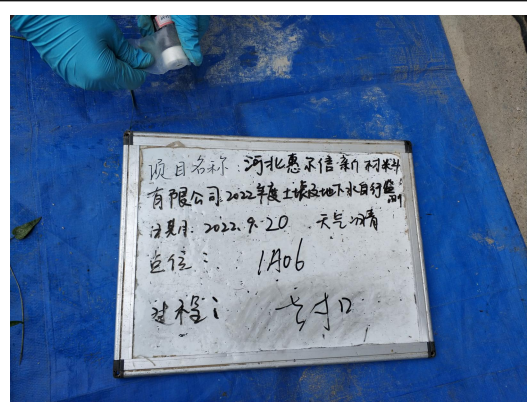 项目名称:河北惠尔信新材料
有限公司2022年度土壤及地下水自行监测
日期:2022.9.20 天气:晴
点位: 1A06
过程: 封口